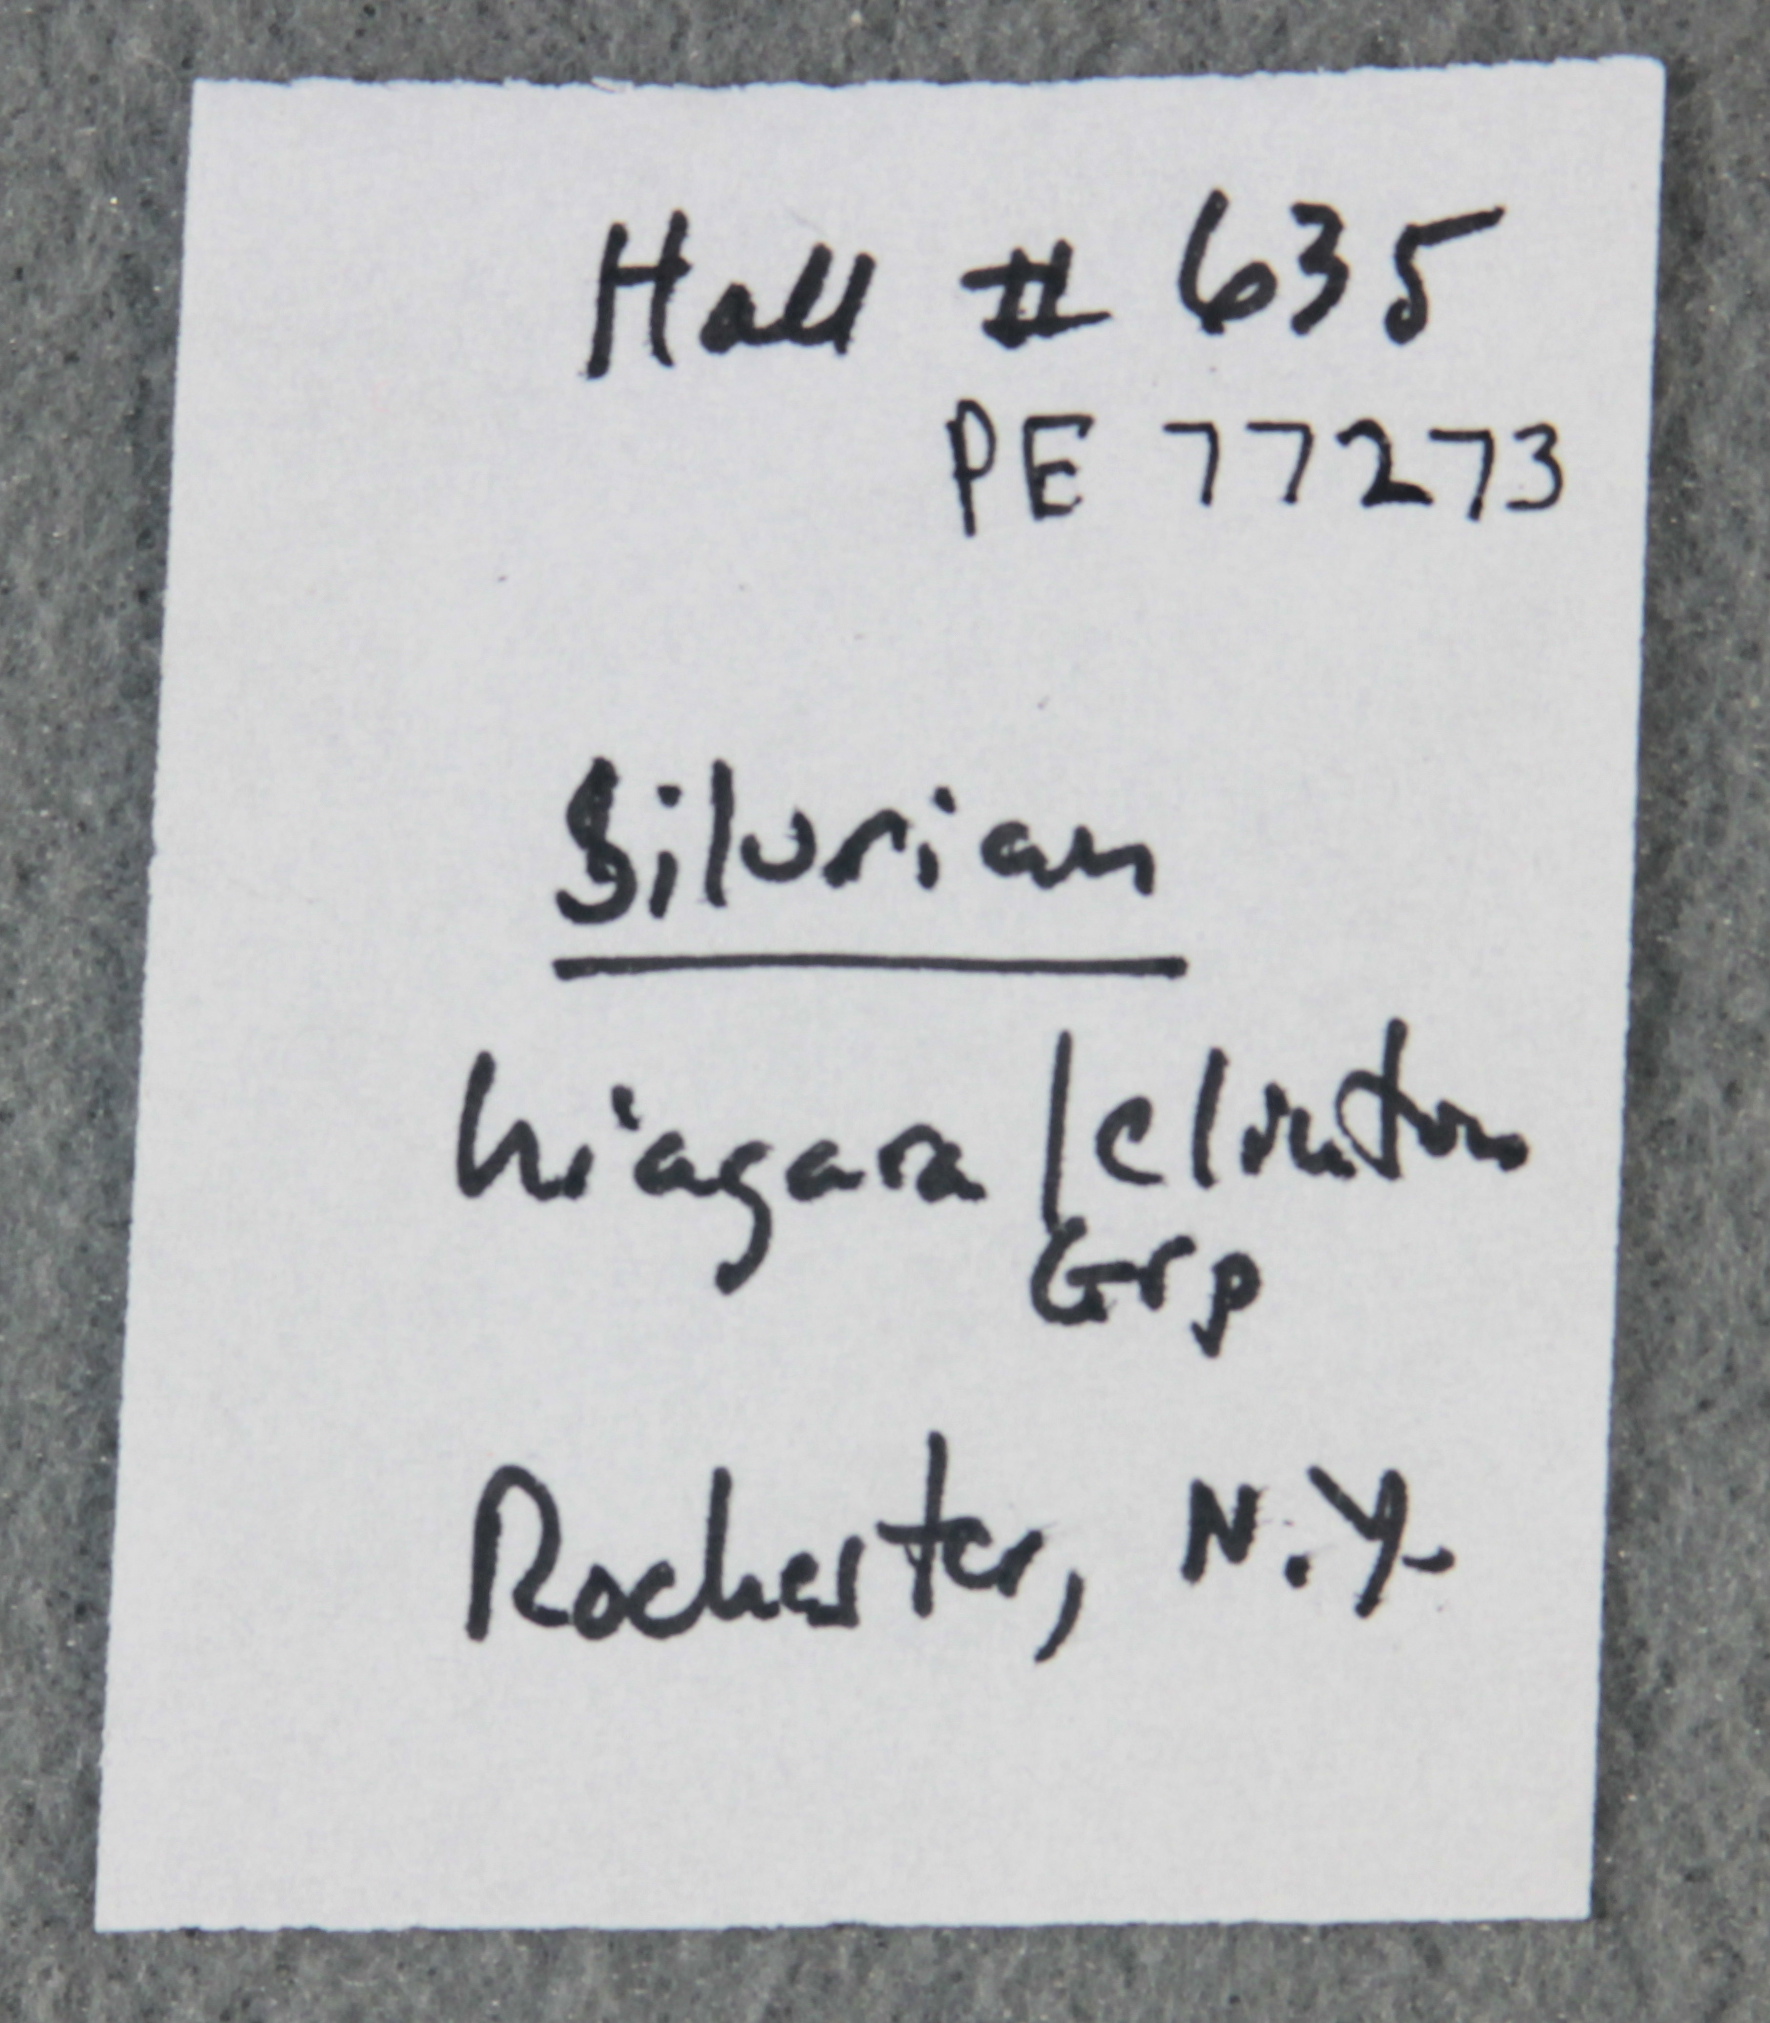 Hall # 635
PE 77273
Silurian
Niagara / Clinton
Grp
Rochester, N.Y.